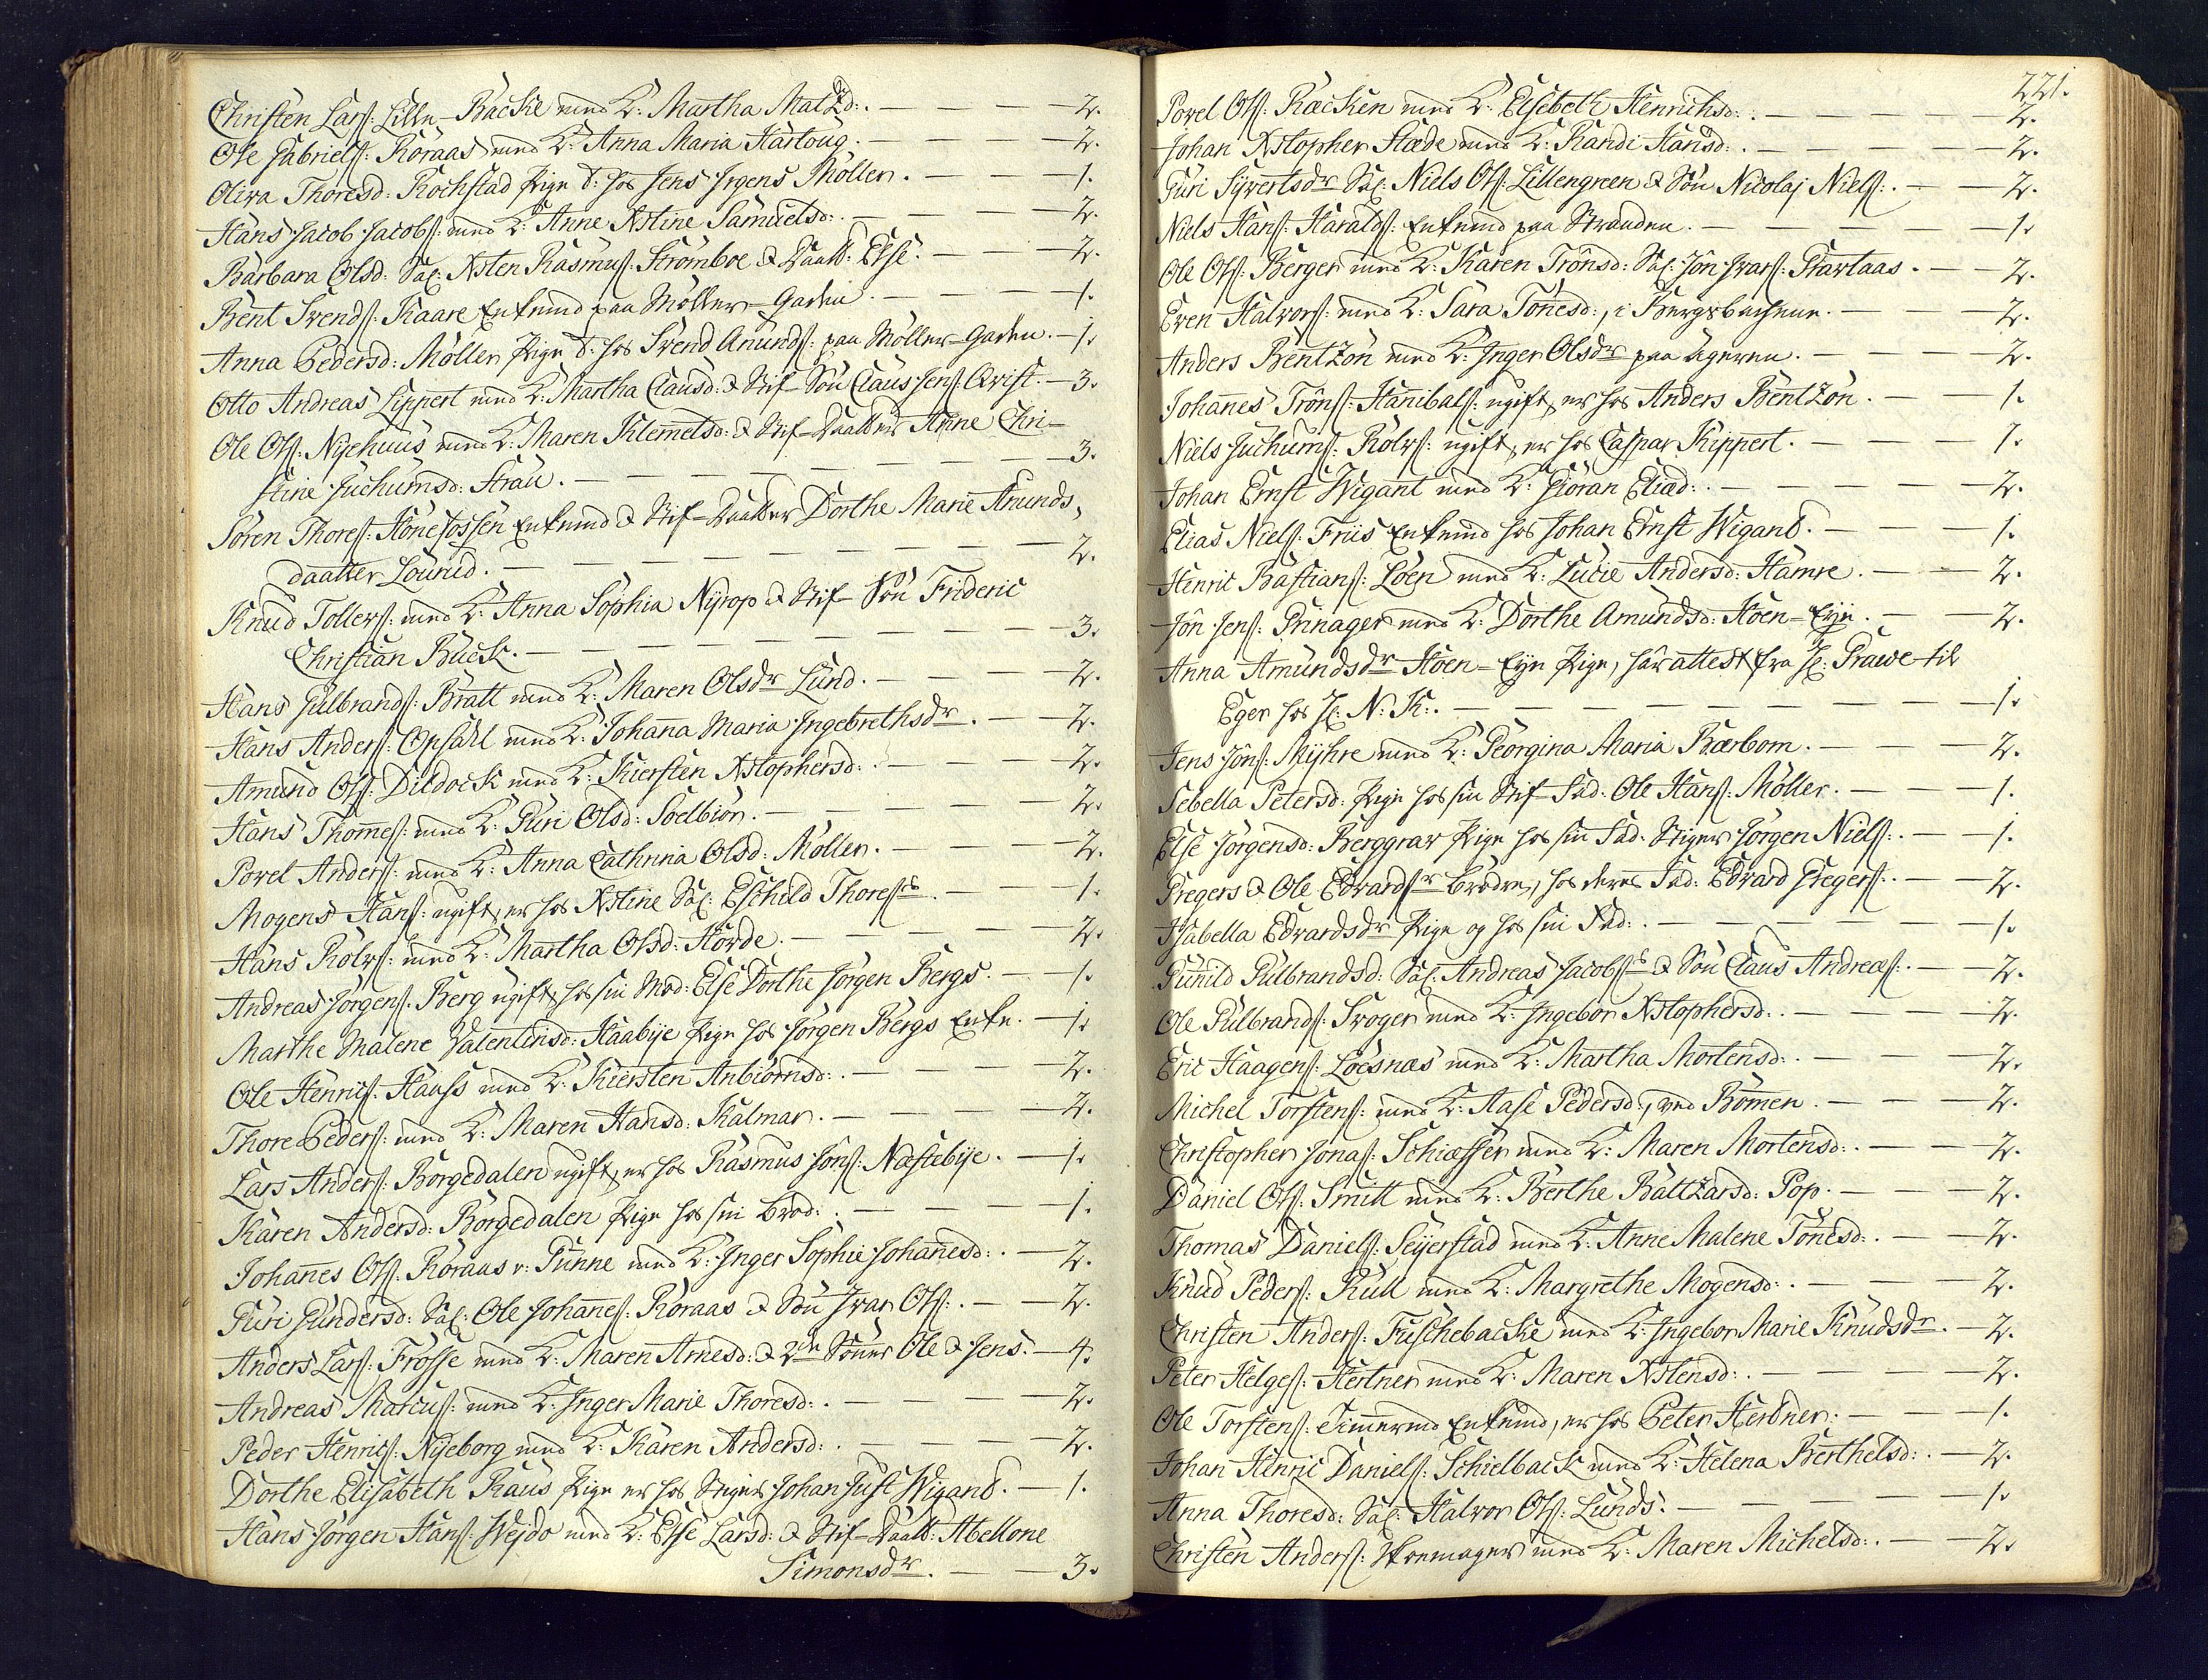 Christen Larſ: Lille-Backe med K: Martha Matzd: — 2.
Ole Gabrielſ: Röraas med K: Anna Maria Hartoug. — 2.
Oliva Thoresd: Rochstad Pige d: hos Jens Jrgens Möller. — 1.
Hans Jacob Jacobſ: med K: Anne Xstine Samuelsd: — 2.
Barbara Olsd: Sal: Xsten Rasmuſ: Stromboe & Daatt: Else. — 2.
Bent Svendſ: Kaare Enkemd paa Möller-Garden. — 1.
Anna Pedersd: Möller Pige d: hos Svend Anundſ: paa Möller-Garden. — 1.
Otto Andreas Lippert med K: Martha Clausd: & Stif-Sön Claus Jenſ: Qvist. — 3.
Ole Olſ: Nyehuus med K: Maren Klemetsd: & Stif-Daatter Anne Chri-
stine Juchumsd: Strau. — 3.
Sören Thoreſ: Honefossen Enkemd & Stif-Daatter Dorthe Marie Anunds,
daatter Lourud. — 2.
Knud Tollefſ: med K: Anna Sophia Nyrop & Stif-Sön Frideric
Christian Buck. — 3.
Hans Gulbrandſ: Bratt med K: Maren Olsdr Lund. — 2.
Hans Anderſ: Opsahl med K: Johana Maria Jngebrethsdr. — 2.
Amund Olſ: Dildock med K: Kiersten Xstophersd: — 2.
Hans Thomeſ: med K: Guri Olsd: Soelbiör. — 2.
Povel Anderſ: med K: Anna Cathrina Olsd: Möller. — 2.
Mogens Hanſ: ugift, er hos Xstine Sal: Eschild Thoreſs. — 1.
Hans Rolvſ: med K: Martha Olsd: Horde. — 2.
Andreas Jörgenſ: Berg ugift, hos sin Mod: Else Dorthe Jörgen Bergs. — 1.
Marthe Malene Valentinsd: Haabye Pige hos Jörgen Bergs Enke. — 1.
Ole Henricſ: Hauss med K: Kiersten Anbiörnsd: — 2.
Thore Pederſ: med K: Maren Hansd: Kalmar. — 2.
Lars Anderſ: Borgedalen ugift, er hos Rasmus Jonſ: Næstebye. — 1.
Karen Andersd: Borgedalen Pige hos sin Brod: — 1.
Johanes Olſ: Röraas v: Gunne med K: Jnger Sophie Johanesd: — 2.
Guri Gundersd: Sal: Ole Johaneſ: Röraas & Sön Jvar Olſ: — 2.
Anders Larſ: Frosse med K: Maren Arnesd: & 2de Sönner Ole & Jens. — 4.
Andreas Marcuſ: med K: Jnger Marie Thoresd: — 2.
Peder Henricſ: Nyeborg med K: Karen Andersd: — 2.
Dorthe Elisabeth Raus Pige er hos Stiger Johan Just Wigand. — 1.
Hans Jörgen Hanſ: Wejdo med K: Else Larsd: & Stif-Daatt: Abellone
Simonsdr. — 3.
221.
Povel Olſ: Racken med K: Elsebeth Henrichsd: — 2.
Johan Xstopher Stæde med K: Randi Hansd: — 2.
Guri Syvertsdr Sal: Niels Olſ: Lillengreen & Sön Nicolaj Nielſ: — 2.
Niels Hanſ: Haraldſ: Enkemd paa Stranden. — 1.
Ole Olſ: Berger med K: Karen Trönsd: Sal: Jön Jvarſ: Gravlaas. — 2.
Even Halvorſ: med K: Sara Tönesd:, i Bergsbachene. — 2.
Anders Bentzön med K: Jnger Olsdr paa Ugeren. — 2.
Johanes Trönſ: Hanibalſ: ugift, er hos Anders Bentzön. — 1.
Niels Juchumſ: Rolvſ: ugift, er hos Caspar Kippert. — 1.
Johan Ernst Wigant med K: Giöran Eliæd: — 2.
Elias Nielſ: Friis Enkemd hos Johan Ernst Wigand. — 1.
Henric Bastianſ: Löen med K: Lucie Andersd: Hamre. — 2.
Jön Jenſ: Prinager med K: Dorthe Amundsd: Hoen-Eye. — 2.
Anna Amundsdr Hoen-Eye Pige, har attest fra H: Grawe til
Eger hos H: N: K: — 1.
Jens Jönſ: Myhre med K: Georgina Maria Bærbom. — 2.
Sebella Petersd: Pige hos sin Stif-Fad: Ole Hanſ: Möller. — 1.
Else Jörgensd: Berggrav Pige hos sin Fad: Stiger Jörgen Nielſ: — 1.
Gregers & Ole Edvardſr Brödre, hos deres Fad: Edvard Gregerſ: — 2.
Jsabella Edvardsdr Pige og hos sin Fad: — 1.
Gunild Gulbrandsd: Sal: Andreas Jacobſs & Sön Claus Andreæſ: — 2.
Ole Gulbrandſ: Svoger med K: Jngebor Xstophersd: — 2.
Eric Haagenſ: Löesnæs med K: Martha Mortensd: — 2.
Michel Torstenſ: med K: Aase Pedersd:, ved Bommen. — 2.
Christopher Jonaſ: Schiæsser med K: Maren Mortensd: — 2.
Daniel Olſ: Smitt med K: Berthe Baltzarsd: Pop. — 2.
Thomas Danielſ: Seyerstad med K: Anne Malene Tönesd: — 2.
Knud Pederſ: Kull med K: Margrethe Mogensd: — 2.
Christen Anderſ: Fuschebacke med K: Jngebor Marie Knudsdr. — 2.
Peter Helgeſ: Hertner med K: Maren Xstensd: — 2.
Ole Torstenſ: Timermd Enkemd, er hos Peter Hertner. — 1.
Johan Henric Danielſ: Schielback med K: Helena Berthelsd: — 2.
Anna Thoresd: Sal: Halvor Olſ: Lunds. — 1.
Christen Anderſ: Skoemager med K: Maren Michelsd: — 2.